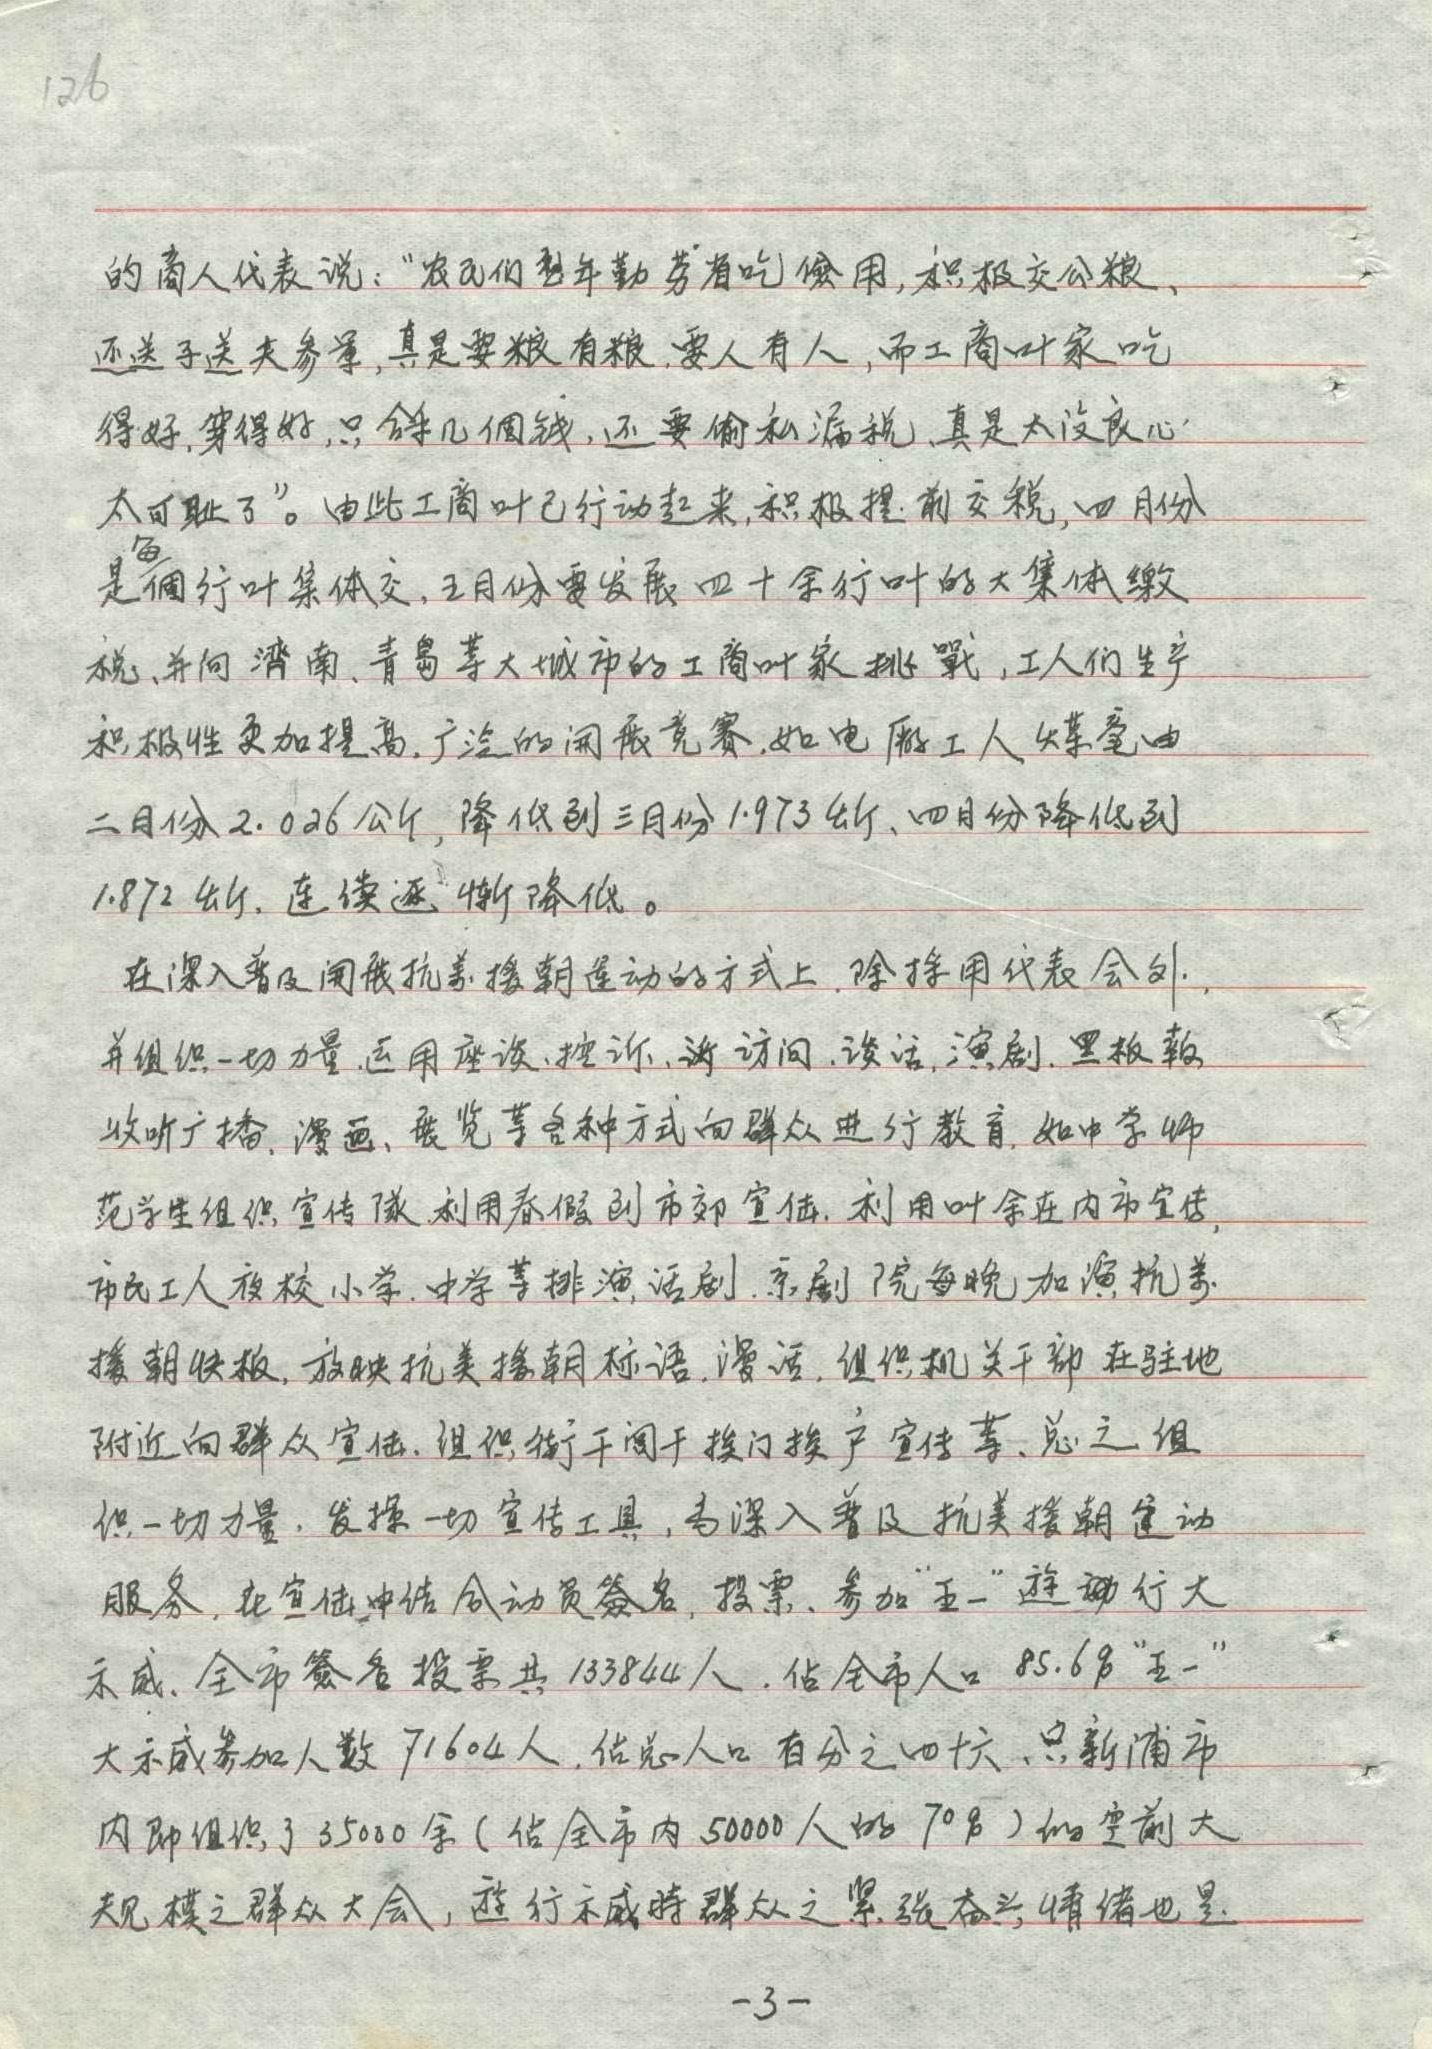 126
的商人代表说：“农民们整年勤劳省吃儉用，积极交公粮、
还送子送夫参軍，真是要粮有粮，要人有人，而工商叶家吃
得好，穿得好，只拿几個钱，还要偷私漏税、真是太没良心
太可耻了”。由此工商叶已行动起来，积极提前交税，四月份
是每個行叶集体交，五月份要发展四十余行叶的大集体缴
税、并向濟南、青島等大城市的工商叶家挑戰，工人们生产
积极性更加提高，广泛的開展竞赛，如电廠工人煤毫由
二月份2.026公斤，降低到三月份1.973公斤、四月份降低到
1.872公斤、连续逐漸降低。
在深入普及開展抗美援朝运动的方式上，除採用代表会外，
并组织一切力量、运用座谈、控诉、访问、谈话，演剧、黑板報
收听广播、漫画、展览等各种方式向群众进行教育，如中学师
范学生组织宣传隊利用春假到市郊宣传，利用叶余在内市宣传，
市民工人夜校小学、中学等排演话剧、京剧院每晚加演抗美
援朝快板，放映抗美援朝标语、漫话，组织机关干部在驻地
附近向群众宣传、组织街干闾干挨门挨户宣传等、总之组
织一切力量，发揮一切宣传工具，为深入普及抗美援朝运动
服务，在宣传中结合动员簽名，投票、参加“五一”遊行大
示威、全市簽名投票共133844人，佔全市人口85.6%“五一”
大示威参加人数71604人，佔总人口百分之四十六、只新浦市
内即组织了35000余（佔全市内50000人的70%）的空前大
规模之群众大会，遊行示威時群众之緊張奋兴情绪也是
-3-